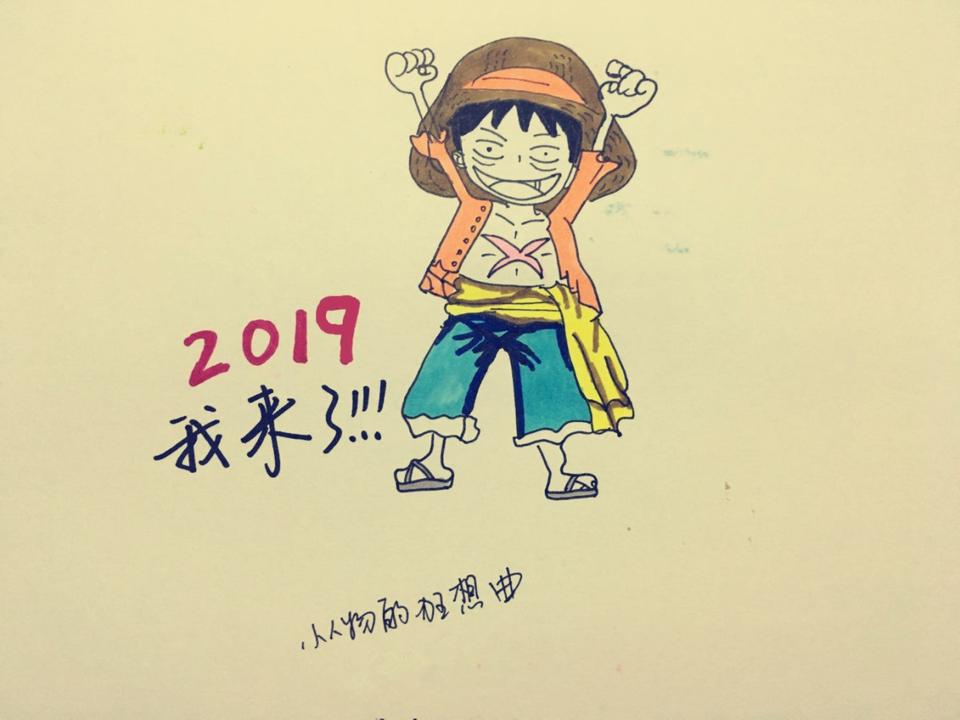 2019
我来了!!!
小人物的狂想曲